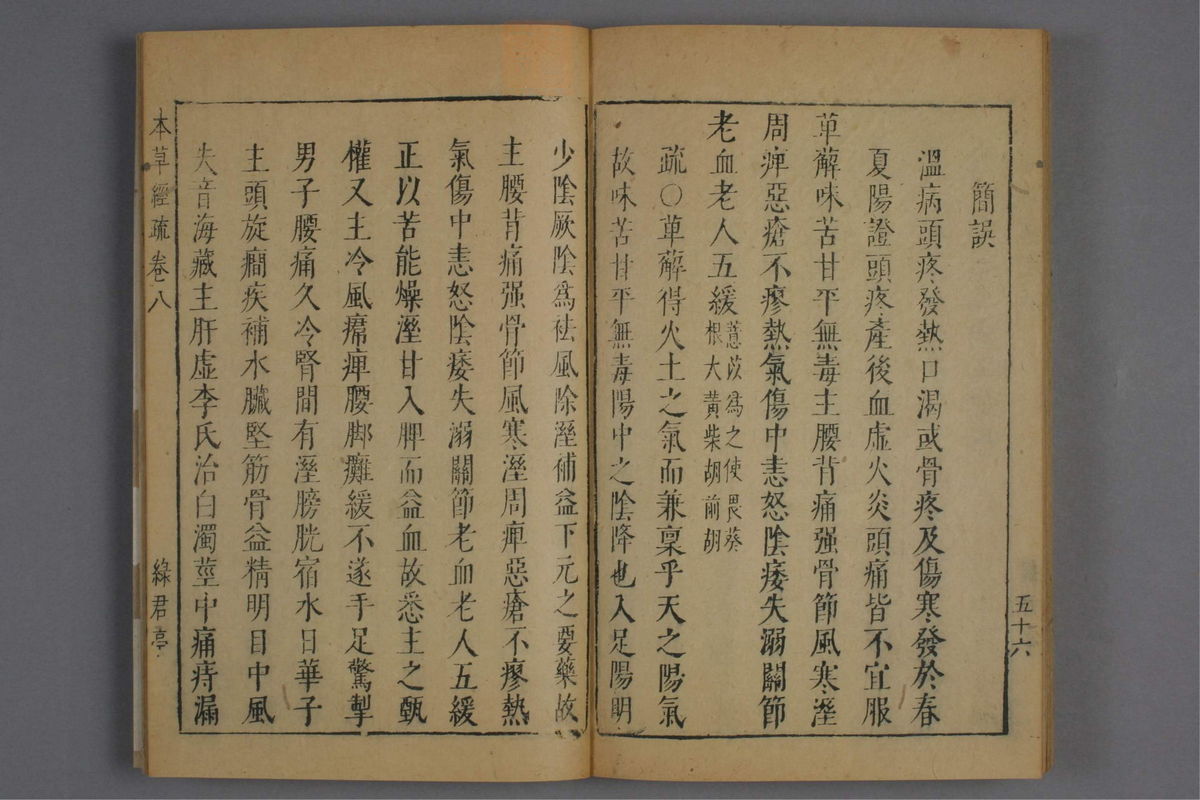 簡誤
溫病頭疼發熱口渴或骨疼及傷寒發於春
夏陽證頭疼產後血虛火炎頭痛皆不宜服
萆薢味苦甘平無毒主腰背痛强骨節風寒溼
周痺惡瘡不瘳熱氣傷中恚怒陰痿失溺關節
老血老人五緩薏苡為之使畏葵根大黃柴胡前胡
疏〇萆薢得火土之氣而兼稟乎天之陽氣
故味苦甘平無毒陽中之陰降也入足陽明
五十六
少陰厥陰爲祛風除溼補益下元之要藥故
主腰背痛强骨節風寒溼周痺惡瘡不瘳熱
氣傷中恚怒陰痿失溺關節老血老人五緩
正以苦能燥溼甘入脾而益血故悉主之甄
權又主冷風㾹痺腰脚癱緩不遂手足驚掣
男子腰痛久冷腎間有溼膀胱宿水日華子
主頭旋癎疾補水臟堅筋骨益精明目中風
失音海藏主肝虛李氏治白濁莖中痛痔漏
本草經疏卷八
綠君亭